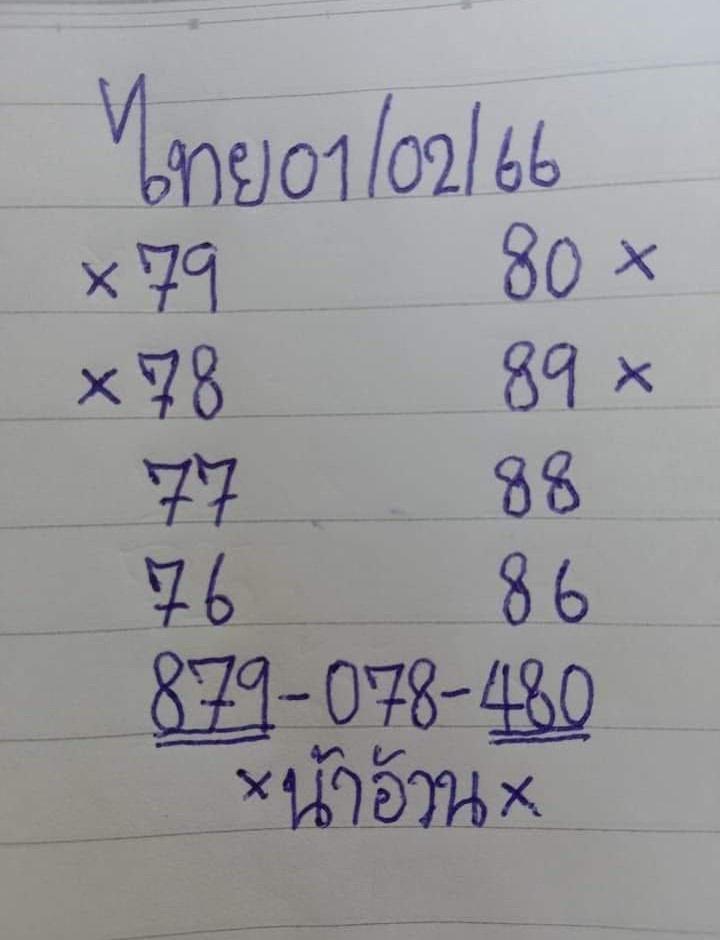 ไทย 01/02/66
× 79 80 ×
× 78 89 ×
77 88
76 86
879-078-480
× น้าอ้วน ×